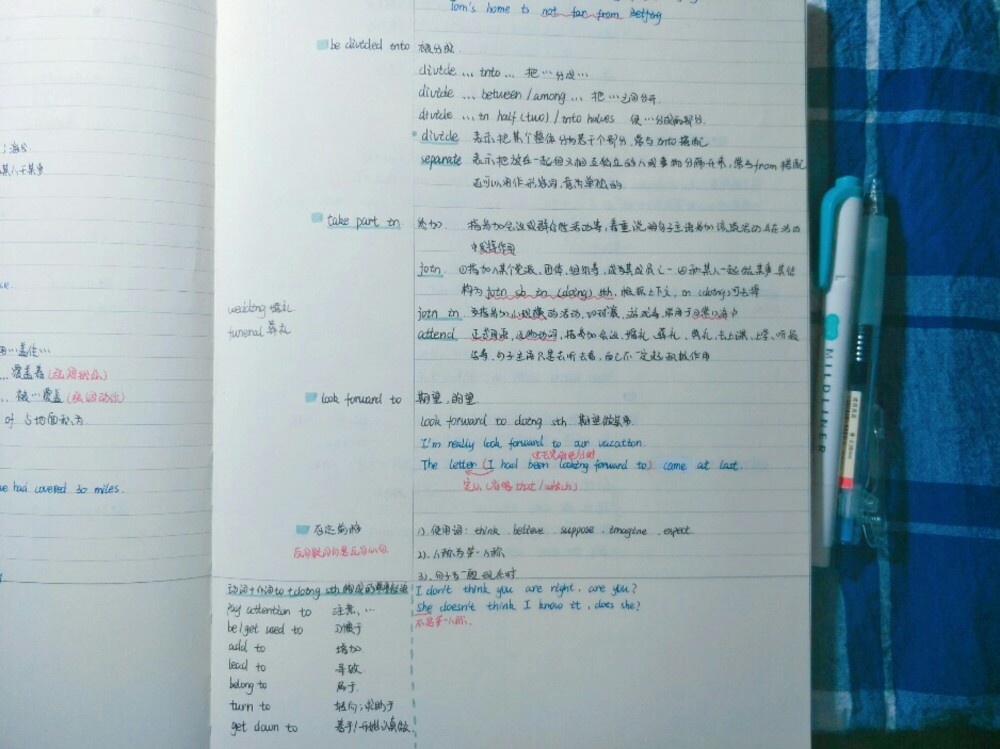 Tom's home is not far from Beijing
be divided into 被分成
divide ... into ... 把…分成…
divide ... between / among ... 把…之间分开
divide ... in half (two) / into halves 使…分成两部分
divide 表示把某个整体分为若干个部分,常与into搭配
separate 表示把放在一起但又相互独立的人或事物分隔开来,常与from搭配
还可以用作形容词,意为单独的
take part in 参加 指参加会议或群众性活动等,着重说明句子主语参加该项活动并在活动
中发挥作用
join ①指加入某个党派,团体,组织等,成为其成员之一 ②和某人一起做某事 其结
构为 join sb in (doing) sth, 根据上下文, in (doing) 可去掉
wedding 婚礼
join in 多指参加小规模的活动,如球赛,游戏等,常用于日常口语中
funeral 葬礼
attend 正式用语,及物动词,指参加会议,婚礼,葬礼,典礼,去上课,上学,听报
告等,句子主语只是去听去看,自己不一定起积极作用
look forward to 期望,盼望
look forward to doing sth. 期望做某事
I'm really look forward to our vacation.
The letter (I had been looking forward to) came at last.
定从 (省略 that / which)
否定前移
1). 使用词: think . believe . suppose . imagine . expect
2). 人称为第一人称
3). 句子为一般现在时
动词+介词to+doing sth 构成的
I don't think you are right, are you?
pay attention to 注意…
she doesn't think I know it, does she?
不是第一人称.
be/get used to 习惯于
add to 增加
lead to 导致
belong to 属于
turn to 转向;求助于
get down to 着手/开始认真做
; 海
某人干某事
用…盖住…
... 覆盖着
... 被…覆盖
of 占地面积为
ve had covered 30 miles.
MILDLINER